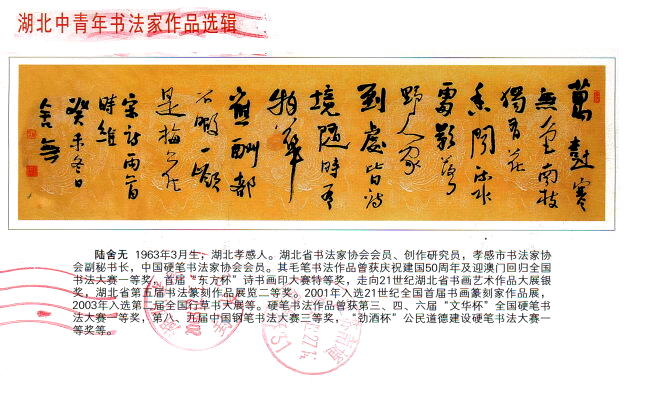 湖北中青年书法家作品选辑
萬
無
獨有花
香聞流水
處影落
野人家
到處皆詩
境隨時有
物華
應酬都
不暇一嶺
是梅花
宋詩兩首
時維
癸未冬日
舍無
陆舍无 1963年3月生，湖北孝感人。湖北省书法家协会会员、创作研究员，孝感市书法家协
会副秘书长，中国硬笔书法家协会会员。其毛笔书法作品曾获庆祝建国50周年及迎澳门回归全国
书法大赛一等奖，首届“东方杯”诗书画印大赛特等奖，走向21世纪湖北省书画艺术作品大展银
奖，湖北省第五届书法篆刻作品展览二等奖。2001年入选21世纪全国首届书画篆刻家作品展，
2003年入选第二届全国行草书大展等。硬笔书法作品曾获第三、四、六届“文华杯”全国硬笔书
法大赛一等奖，第八、九届中国钢笔书法大赛三等奖，“劲酒杯”公民道德建设硬笔书法大赛一
等奖等。